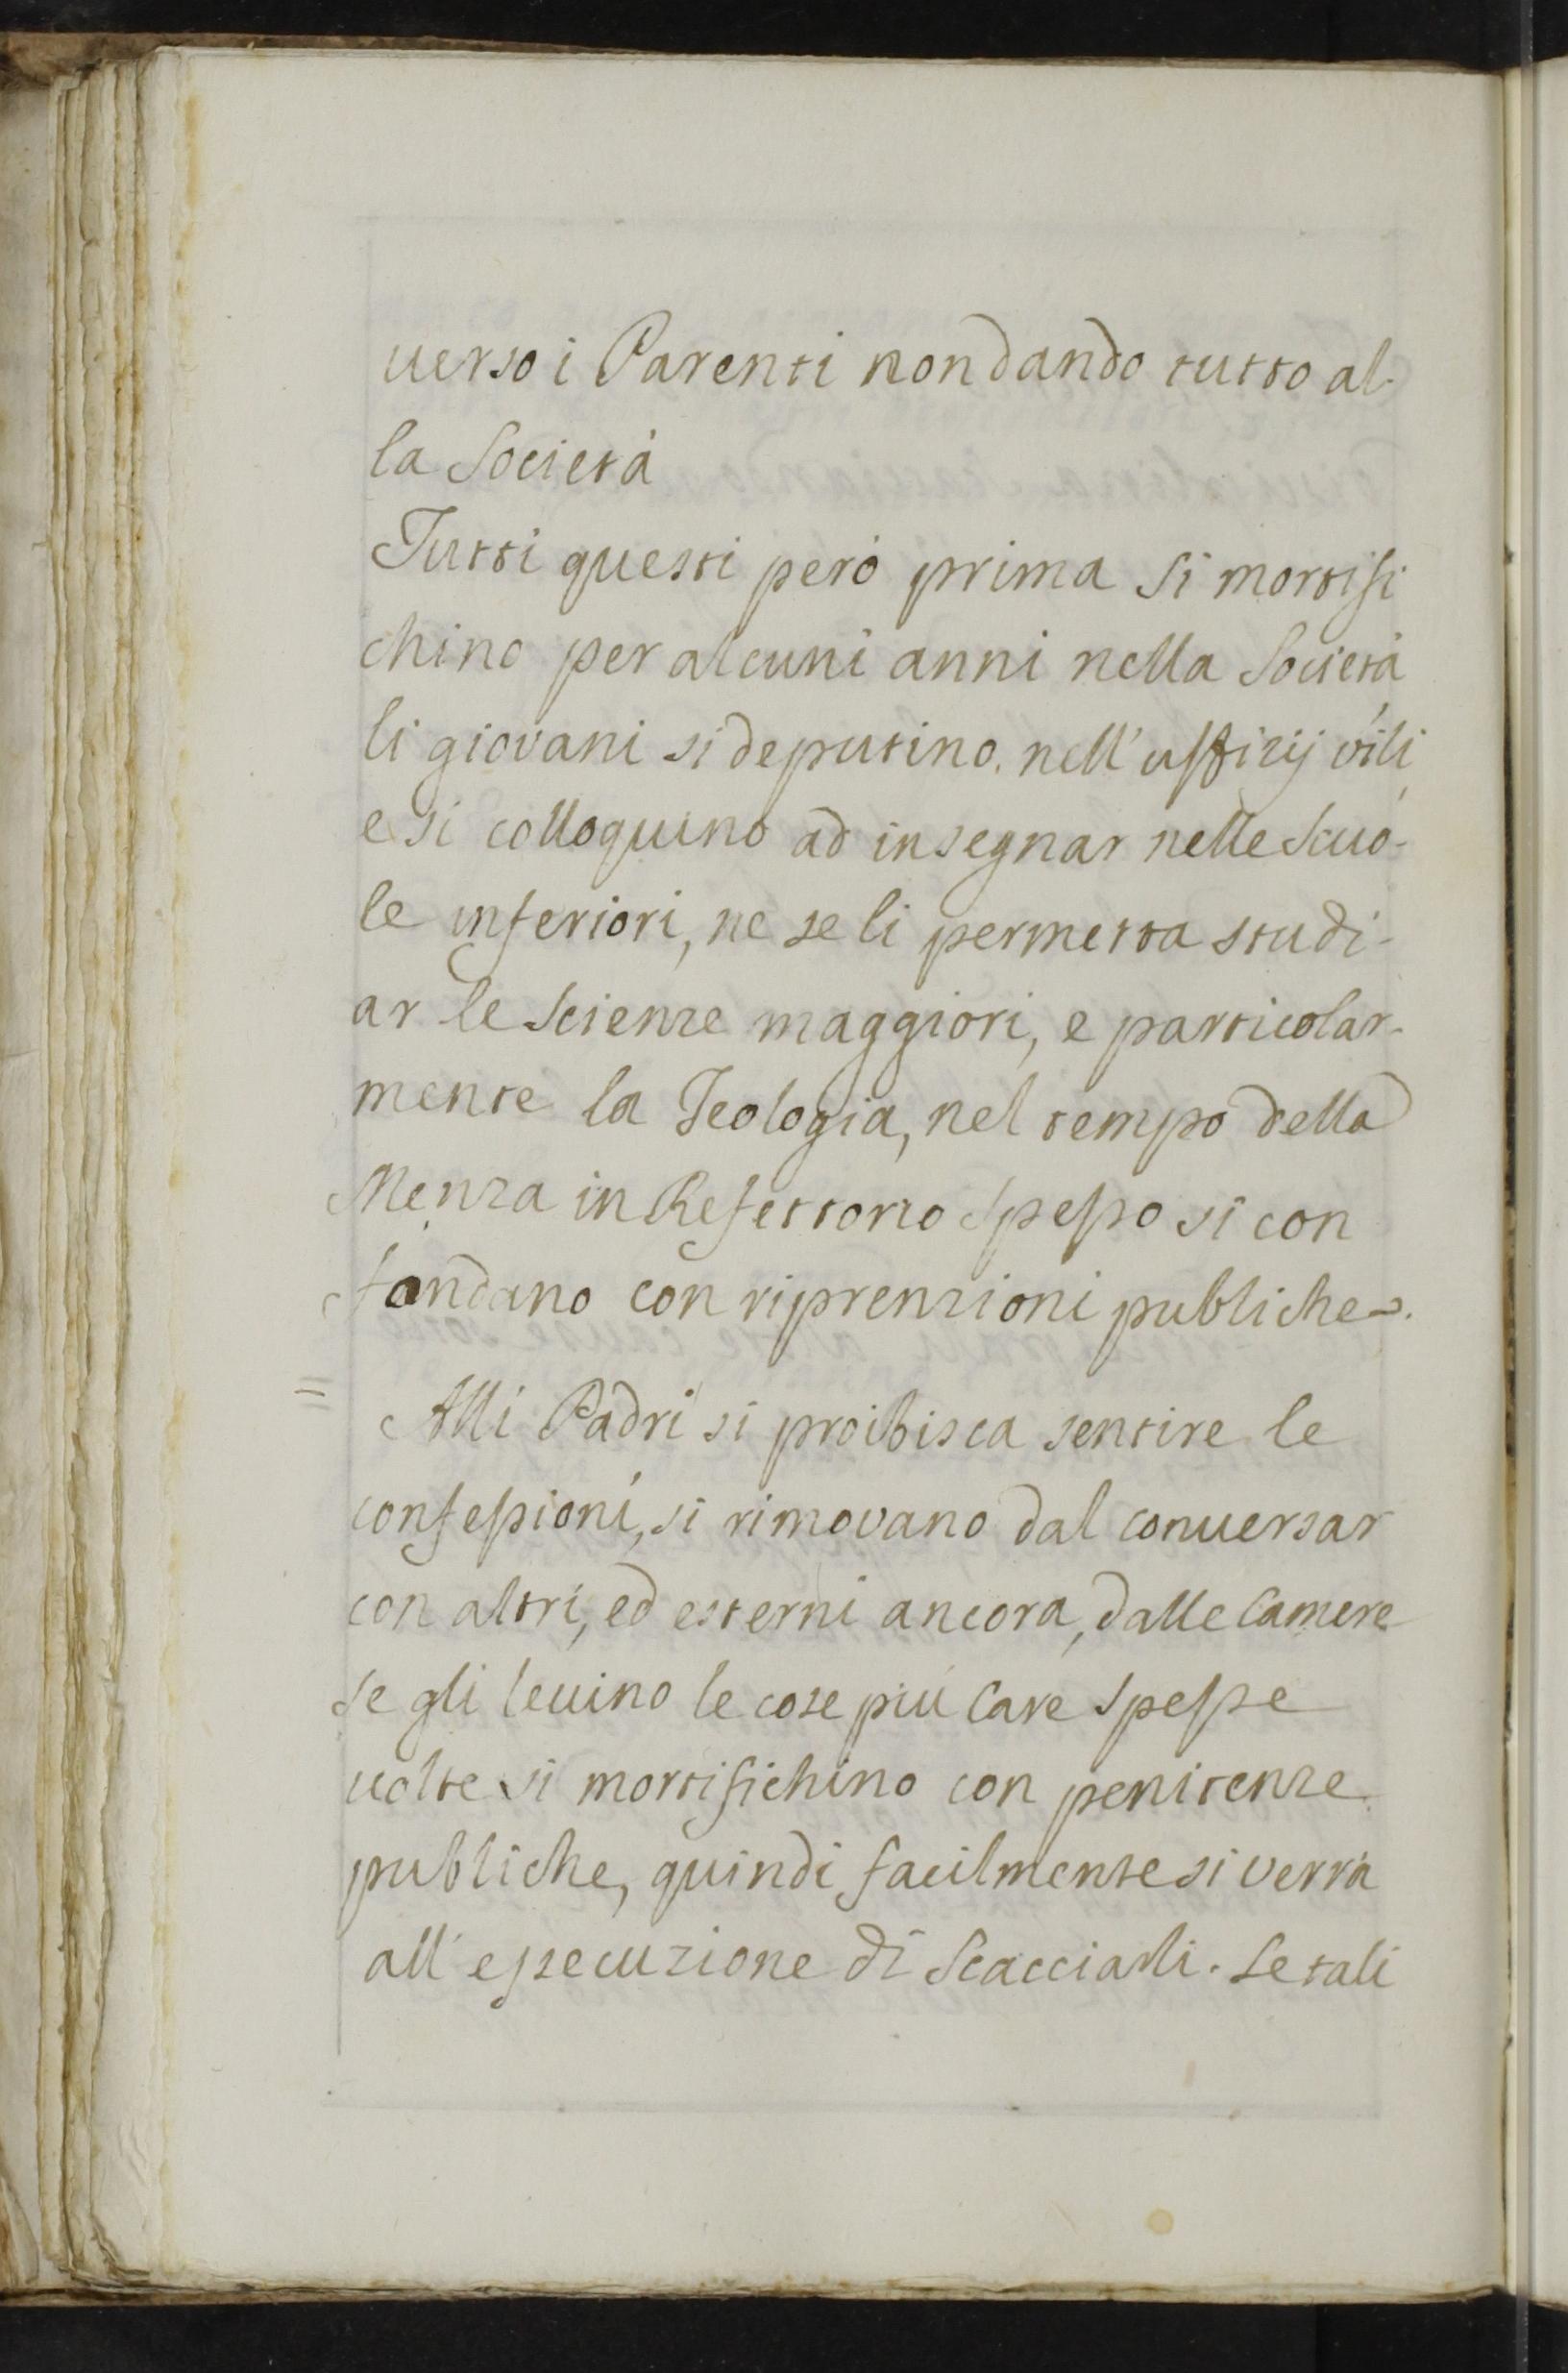 uerso i Parenti non dando tutto al-
la Società
Tutti questi però prima si mortifi
chino per alcuni anni nella Società
li giovani si deputino. nell'uffizij vili
e si colloquino ad insegnar nelle Scuo-
le inferiori, ne se li permetta studi-
ar le Scienze maggiori, e particolar-
mente la Teologia, nel tempo della
Menza in Refettorio spesso si con
fondano con riprenzioni publiche.
= Alli Padri si proibisca sentire le
confessioni, si rimovano dal conuersar
con altri, ed esterni ancora, dalle Camere
se gli leuino le cose più Care spesse
uolte si mortifichino con penitenze
publiche, quindi facilmente si verrà
all'essecuzione di Scacciarli. Se tali